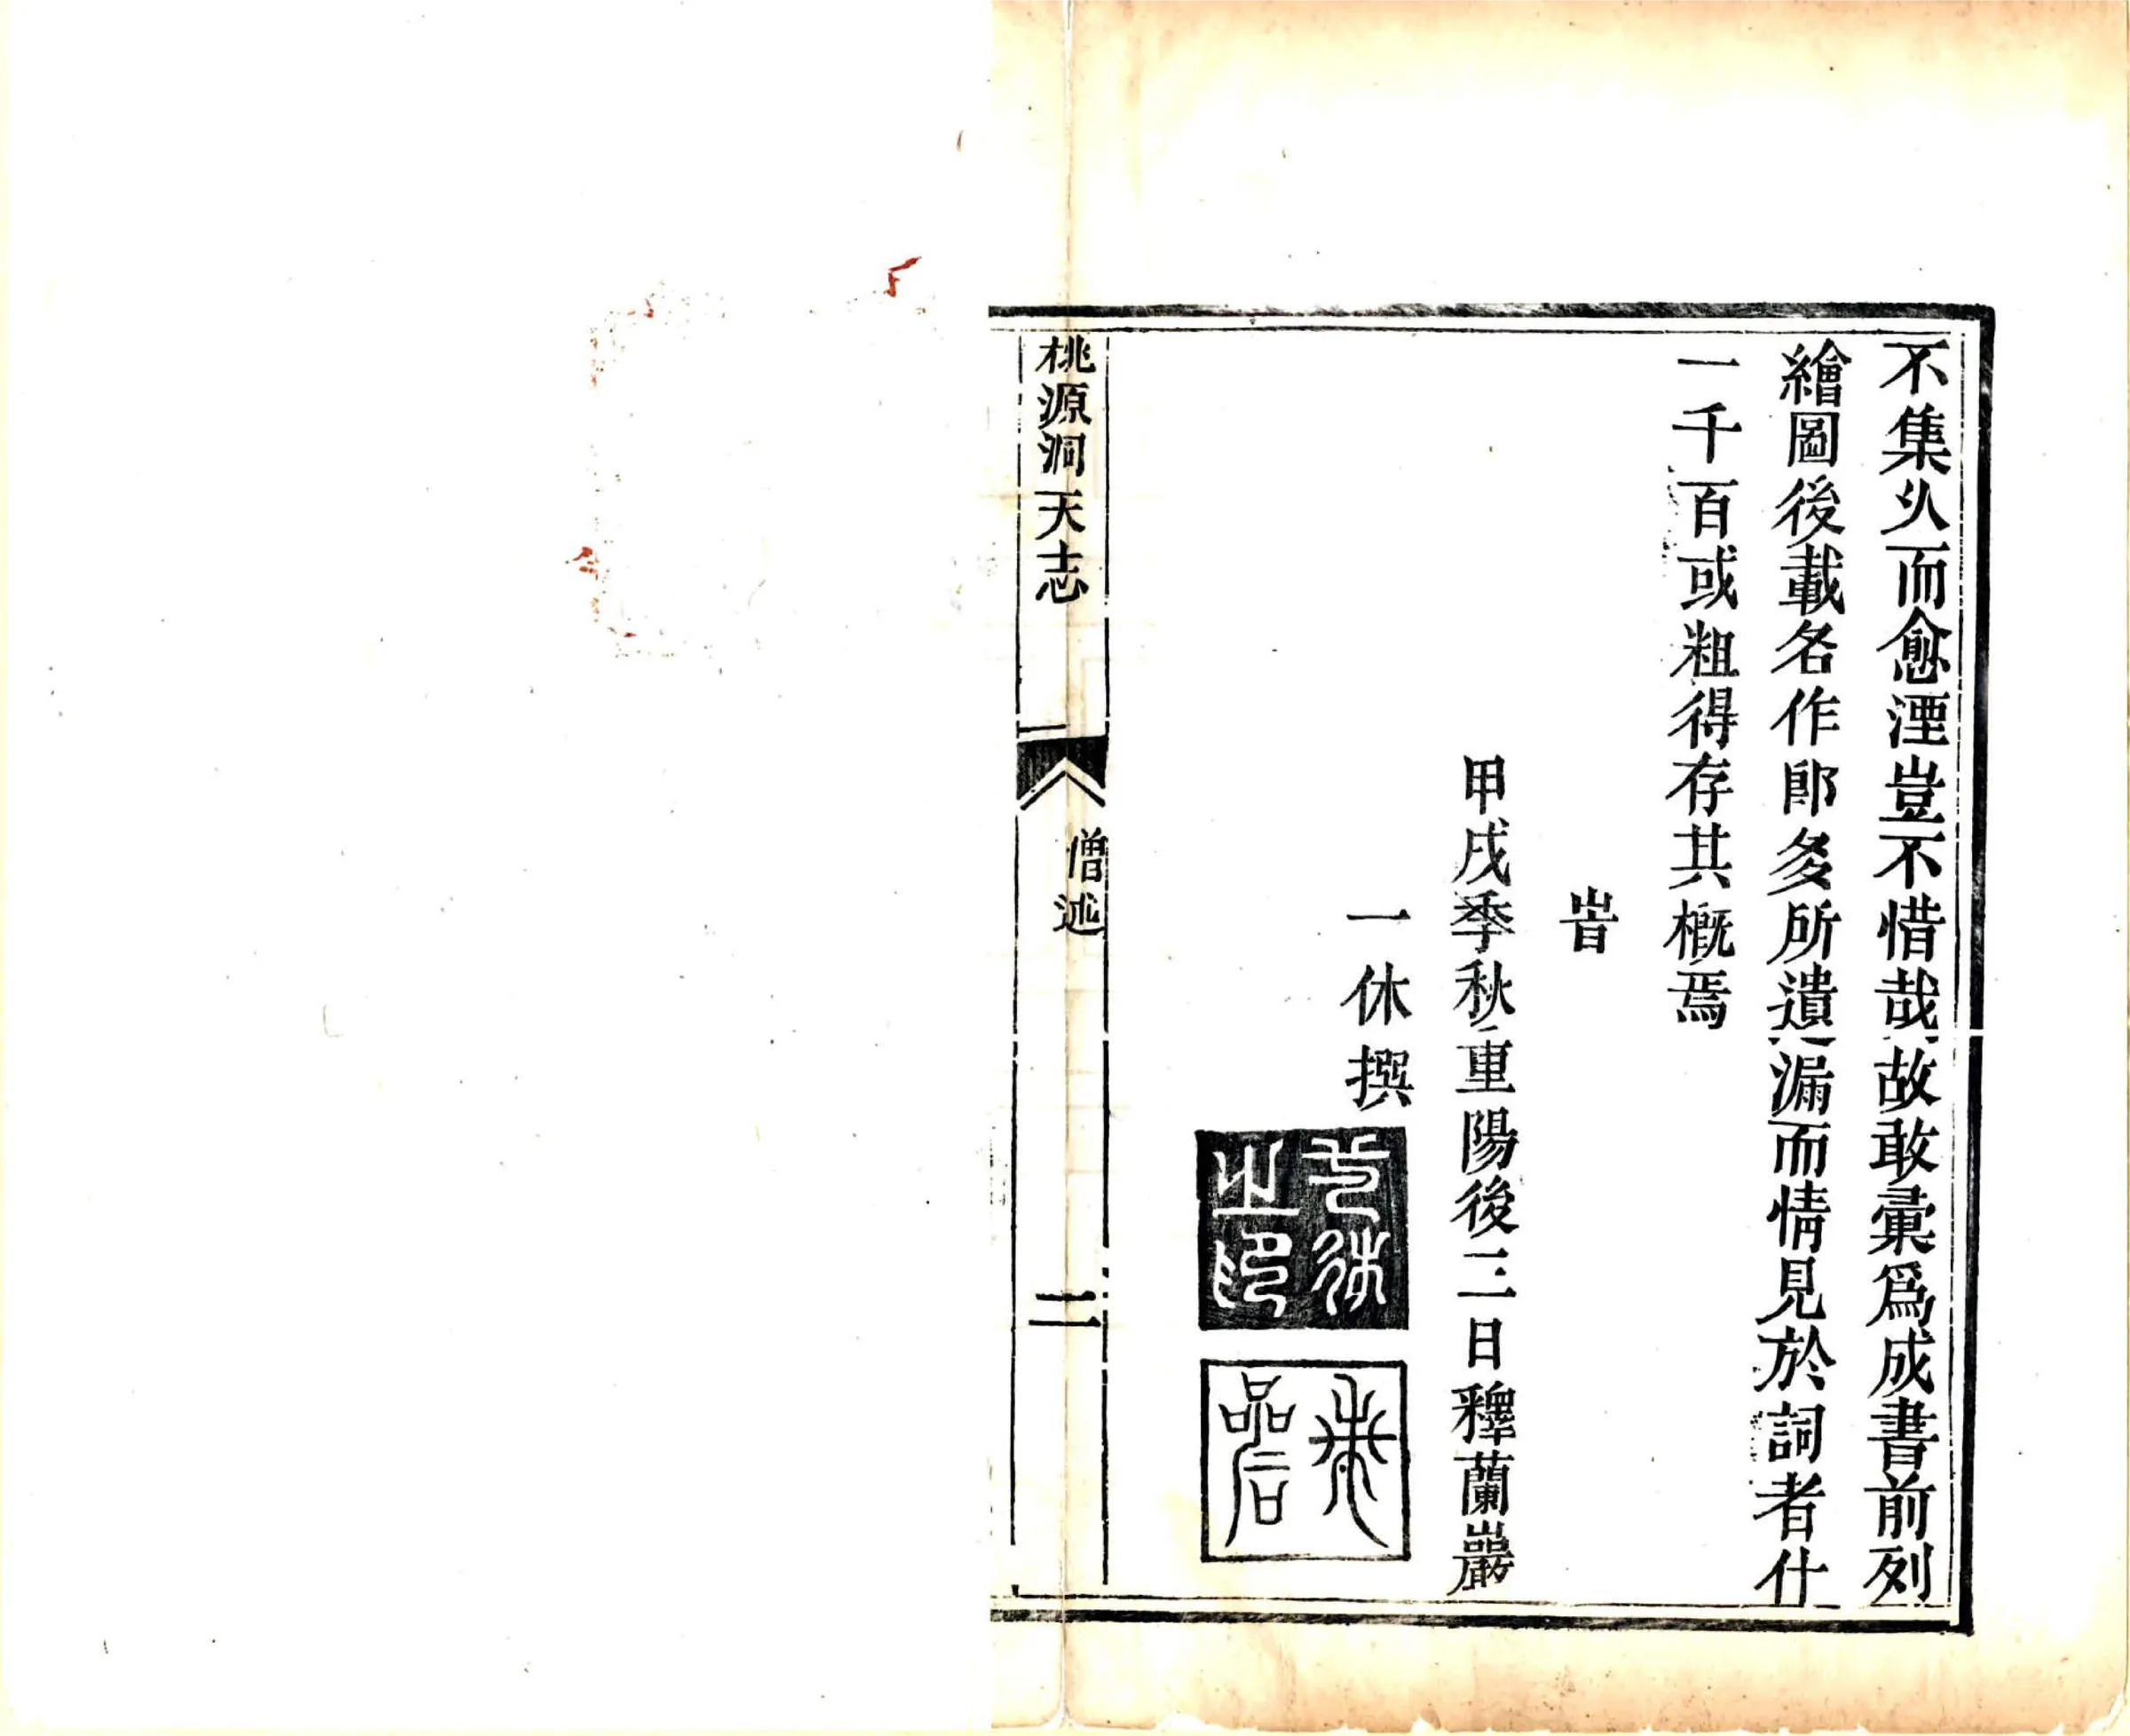 不集乆而愈湮豈不惜哉故敢彙爲成書前列
繪圖後載名作卽多所遺漏而情見於詞者什
一千百或粗得存其概焉
旹
甲戌季秋重陽後三日釋蘭巖
一休撰
一休之印
品石
桃源洞天志
僧述
二